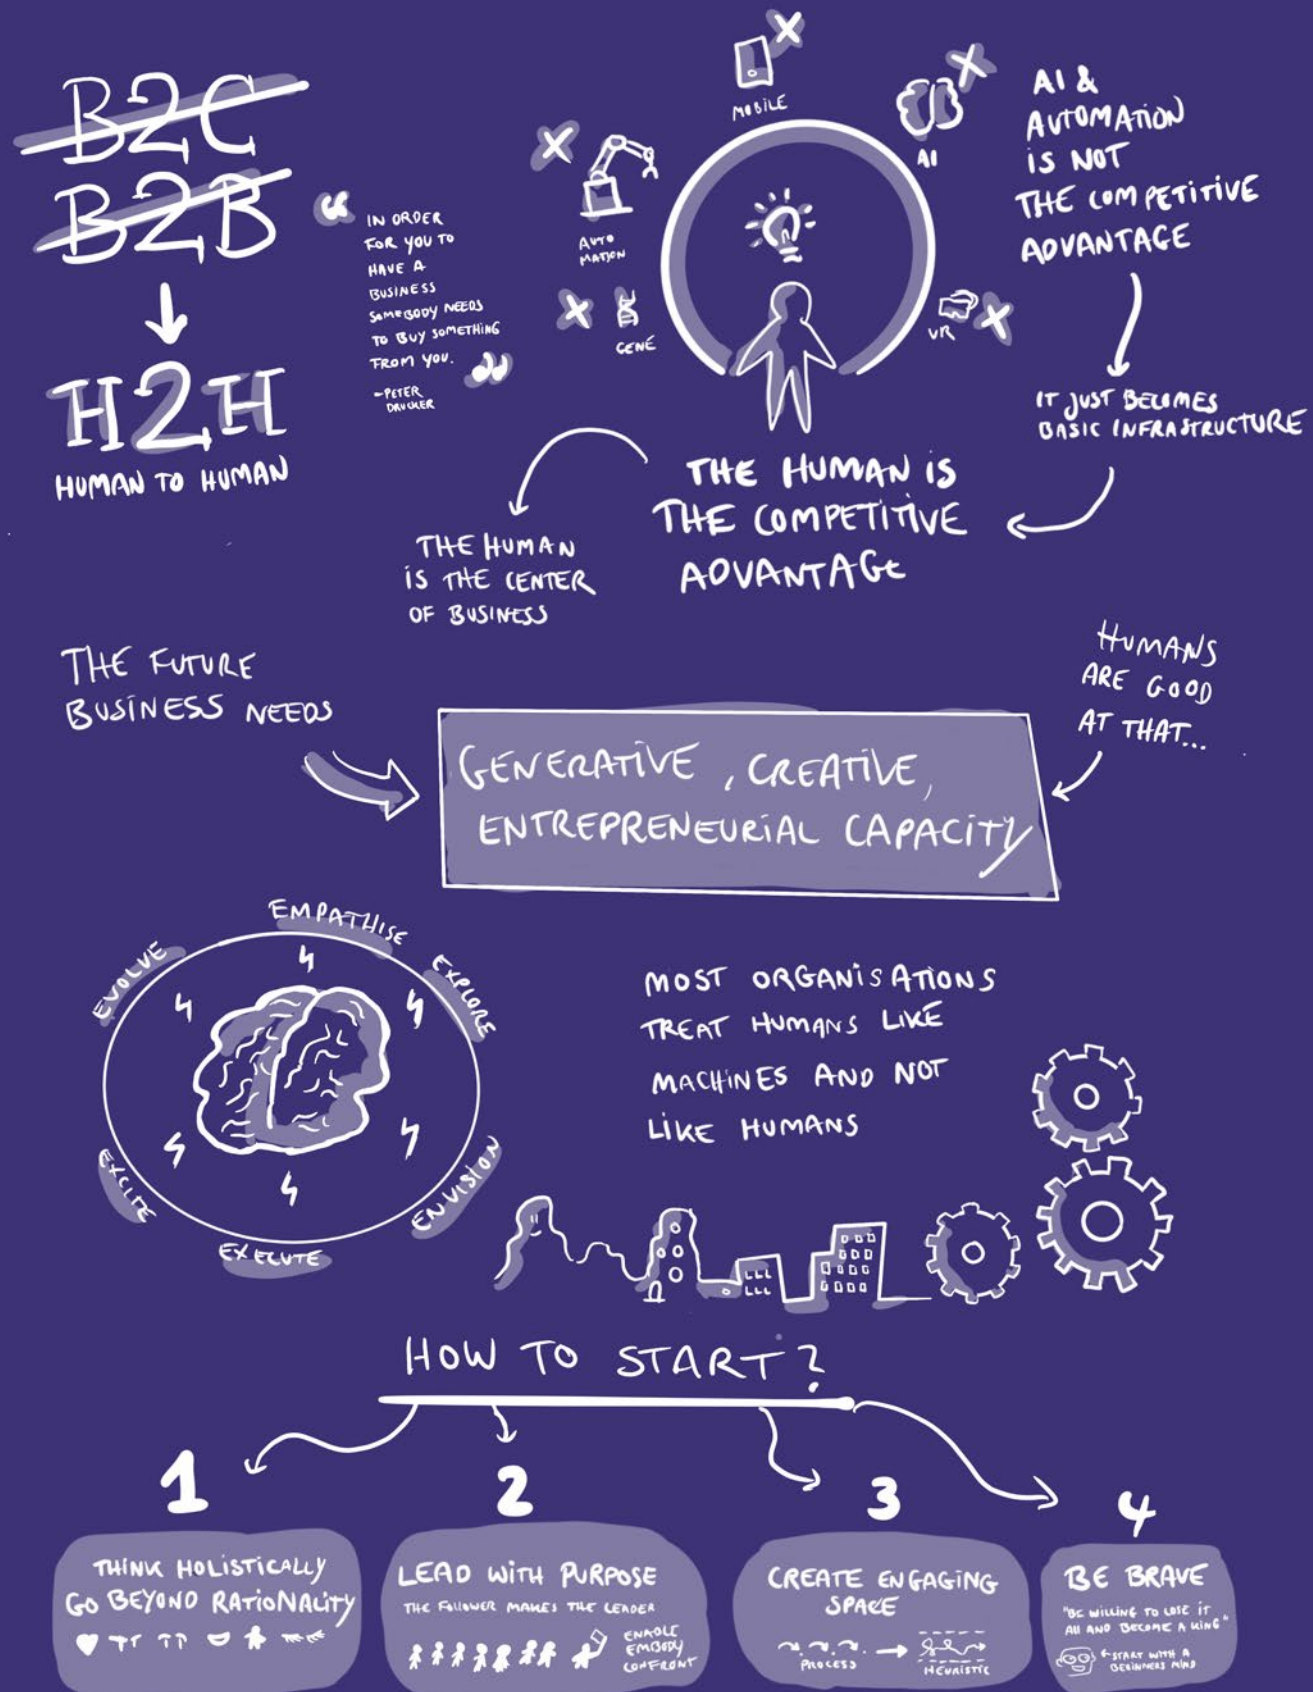 B2C
B2B
H2H
HUMAN TO HUMAN
“
IN ORDER
FOR YOU TO
HAVE A
BUSINESS
SOMEBODY NEEDS
TO BUY SOMETHING
FROM YOU.
”
-PETER
DRUCKER
MOBILE
AI
AUTO
MATION
GENE
VR
AI &
AUTOMATION
IS NOT
THE COMPETITIVE
ADVANTAGE
IT JUST BECOMES
BASIC INFRASTRUCTURE
THE HUMAN IS
THE COMPETITIVE
ADVANTAGE
THE HUMAN
IS THE CENTER
OF BUSINESS
THE FUTURE
BUSINESS NEEDS
GENERATIVE, CREATIVE,
ENTREPRENEURIAL CAPACITY
HUMANS
ARE GOOD
AT THAT...
EMPATHISE
EXPLORE
ENVISION
EXECUTE
EXCITE
EVOLVE
MOST ORGANISATIONS
TREAT HUMANS LIKE
MACHINES AND NOT
LIKE HUMANS
HOW TO START?
1
THINK HOLISTICALLY
GO BEYOND RATIONALITY
2
LEAD WITH PURPOSE
THE FOLLOWER MAKES THE LEADER
ENABLE
EMBODY
CONFRONT
3
CREATE ENGAGING
SPACE
PROCESS
HEURISTIC
4
BE BRAVE
"BE WILLING TO LOSE IT
ALL AND BECOME A KING"
START WITH A
BEGINNERS MIND